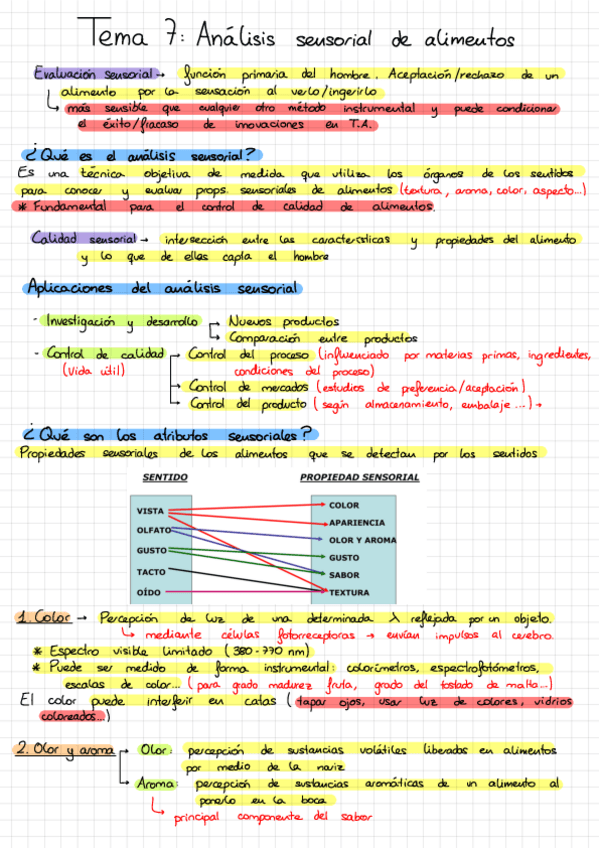 Tema 7: Análisis sensorial de alimentos
Evaluación sensorial → función primaria del hombre. Aceptación/rechazo de un
alimento por la sensación al verlo/ingerirlo
más sensible que cualquier otro método instrumental y puede condicionar
el éxito/fracaso de innovaciones en T.A.
¿Qué es el análisis sensorial?
Es una técnica objetiva de medida que utiliza los órganos de los sentidos
para conocer y evaluar props. sensoriales de alimentos (textura, aroma, color, aspecto...)
* Fundamental para el control de calidad de alimentos.
Calidad sensorial → intersección entre las características y propiedades del alimento
y lo que de ellas capta el hombre
Aplicaciones del análisis sensorial
- Investigación y desarrollo → Nuevos productos
→ Comparación entre productos
- Control de calidad → Control del proceso (influenciado por materias primas, ingredientes,
(Vida útil) condiciones del proceso)
→ Control de mercados (estudios de preferencia/aceptación)
→ Control del producto (según almacenamiento, embalaje...) →
¿Qué son los atributos sensoriales?
Propiedades sensoriales de los alimentos que se detectan por los sentidos
SENTIDO PROPIEDAD SENSORIAL
VISTA
OLFATO
GUSTO
TACTO
OÍDO
COLOR
APARIENCIA
OLOR Y AROMA
GUSTO
SABOR
TEXTURA
1. Color → Percepción de luz de una determinada λ reflejada por un objeto.
mediante células fotorreceptoras → envían impulsos al cerebro.
* Espectro visible limitado (380-770 nm)
* Puede ser medido de forma instrumental: colorímetros, espectrofotómetros,
escalas de color... (para grado madurez fruta, grado del tostado de malta...)
El color puede interferir en catas (tapar ojos, usar luz de colores, vidrios
coloreados...)
2. Olor y aroma → Olor: percepción de sustancias volátiles liberados en alimentos
por medio de la nariz
→ Aroma: percepción de sustancias aromáticas de un alimento al
ponerlo en la boca
principal componente del sabor